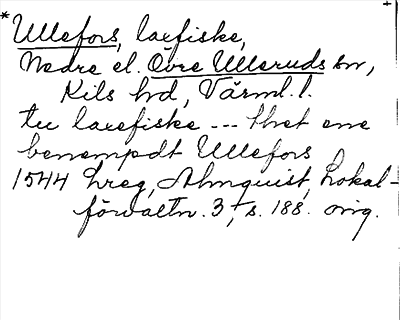 *Ullefors, laxfiske,
Nedre el. Övre Ulleruds sn,
Kils hd, Värml. l.
tu laxefiske --- thet ene
benempdt Ullefors
1544 Lreg, Almquist, Lokal-
förvaltn. 3, s. 188. orig.